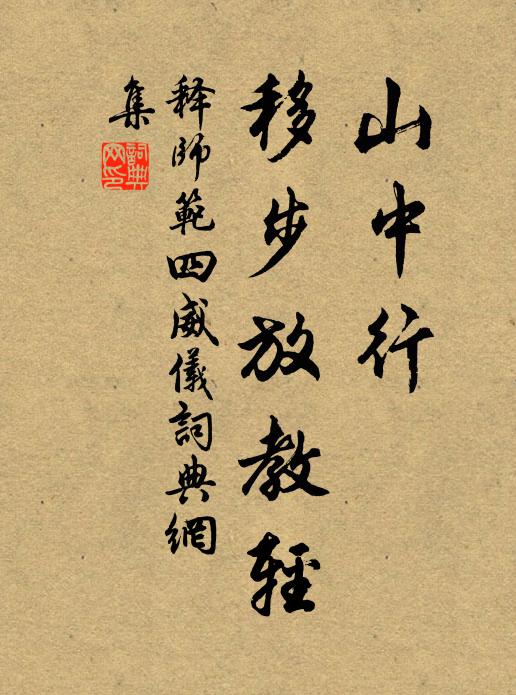 山中行
移步放教輕
释師範四威儀詞典網
集
詞典網印